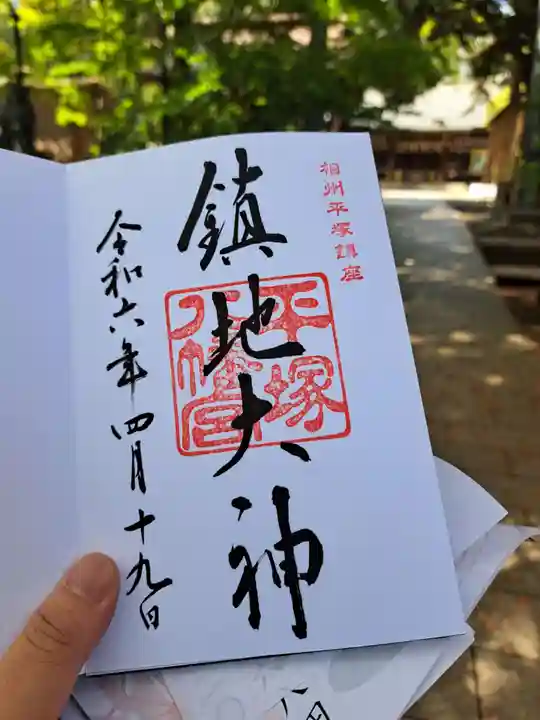 相州平塚鎮座
鎮地大神
平塚八幡宮
令和六年四月十九日